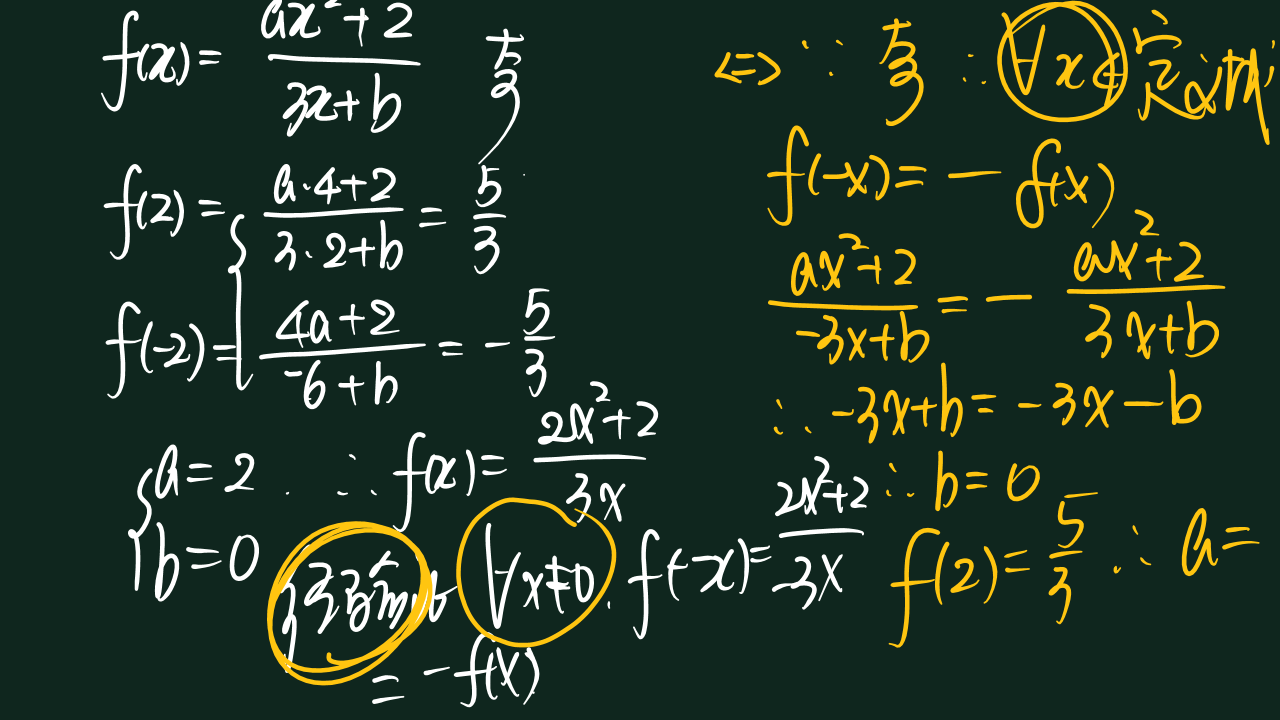 f(x) = (ax²+2)/(3x+b) 奇
f(2) = (a·4+2)/(3·2+b) = 5/3
f(-2) = (4a+2)/(-6+b) = -5/3
{ a=2
b=0
∴ f(x) = (2x²+2)/(3x)
∀x≠0. f(-x) = (2x²+2)/(-3x)
= -f(x)
⇔ ∵ 奇 ∴ ∀x∈定义域
f(-x) = -f(x)
(ax²+2)/(-3x+b) = -(ax²+2)/(3x+b)
∴ -3x+b = -3x-b
∴ b=0
f(2) = 5/3 ∴ a=